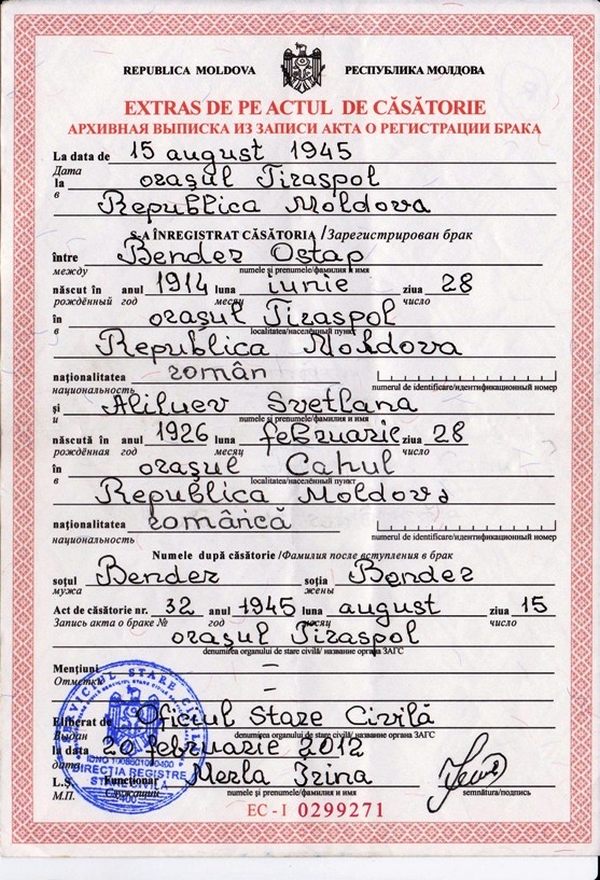 REPUBLICA MOLDOVA РЕСПУБЛИКА МОЛДОВА
EXTRAS DE PE ACTUL DE CĂSĂTORIE
АРХИВНАЯ ВЫПИСКА ИЗ ЗАПИСИ АКТА О РЕГИСТРАЦИИ БРАКА
La data de 15 august 1945
Дата
la orașul Tiraspol
в
Republica Moldova
S-A ÎNREGISTRAT CĂSĂTORIA /Зарегистрирован брак
între Bender Ostap
между numele și prenumele/фамилия и имя
născut în anul 1914 luna iunie ziua 28
рождённый год месяц число
în orașul Tiraspol
в localitatea/населённый пункт
Republica Moldova
naționalitatea român
национальность numerul de identificare/идентификационный номер
și Aliluev Svetlana
и numele și prenumele/фамилия и имя
născută în anul 1926 luna februarie ziua 28
рождённая год месяц число
în orașul Cahul
в localitatea/населённый пункт
Republica Moldova
naționalitatea română
национальность numerul de identificare/идентификационный номер
Numele după căsătorie /Фамилия после вступления в брак
soțul Bender soția Bender
мужа жены
Act de căsătorie nr. 32 anul 1945 luna august ziua 15
Запись акта о браке № год месяц число
orașul Tiraspol
denumirea organului de stare civilă/ название органа ЗАГС
Mențiuni –
Отметки
–
Eliberat de Oficiul Stare Civilă
Выдан denumirea organului de stare civilă/ название органа ЗАГС
la data 20 februarie 2012
дата
L.Ș. Funcționar Merla Irina
М.П. Служащий numele și prenumele/фамилия и имя semnătura/подпись
DIRECȚIA REGISTRE
STARE CIVILĂ
400
EC-I 0299271